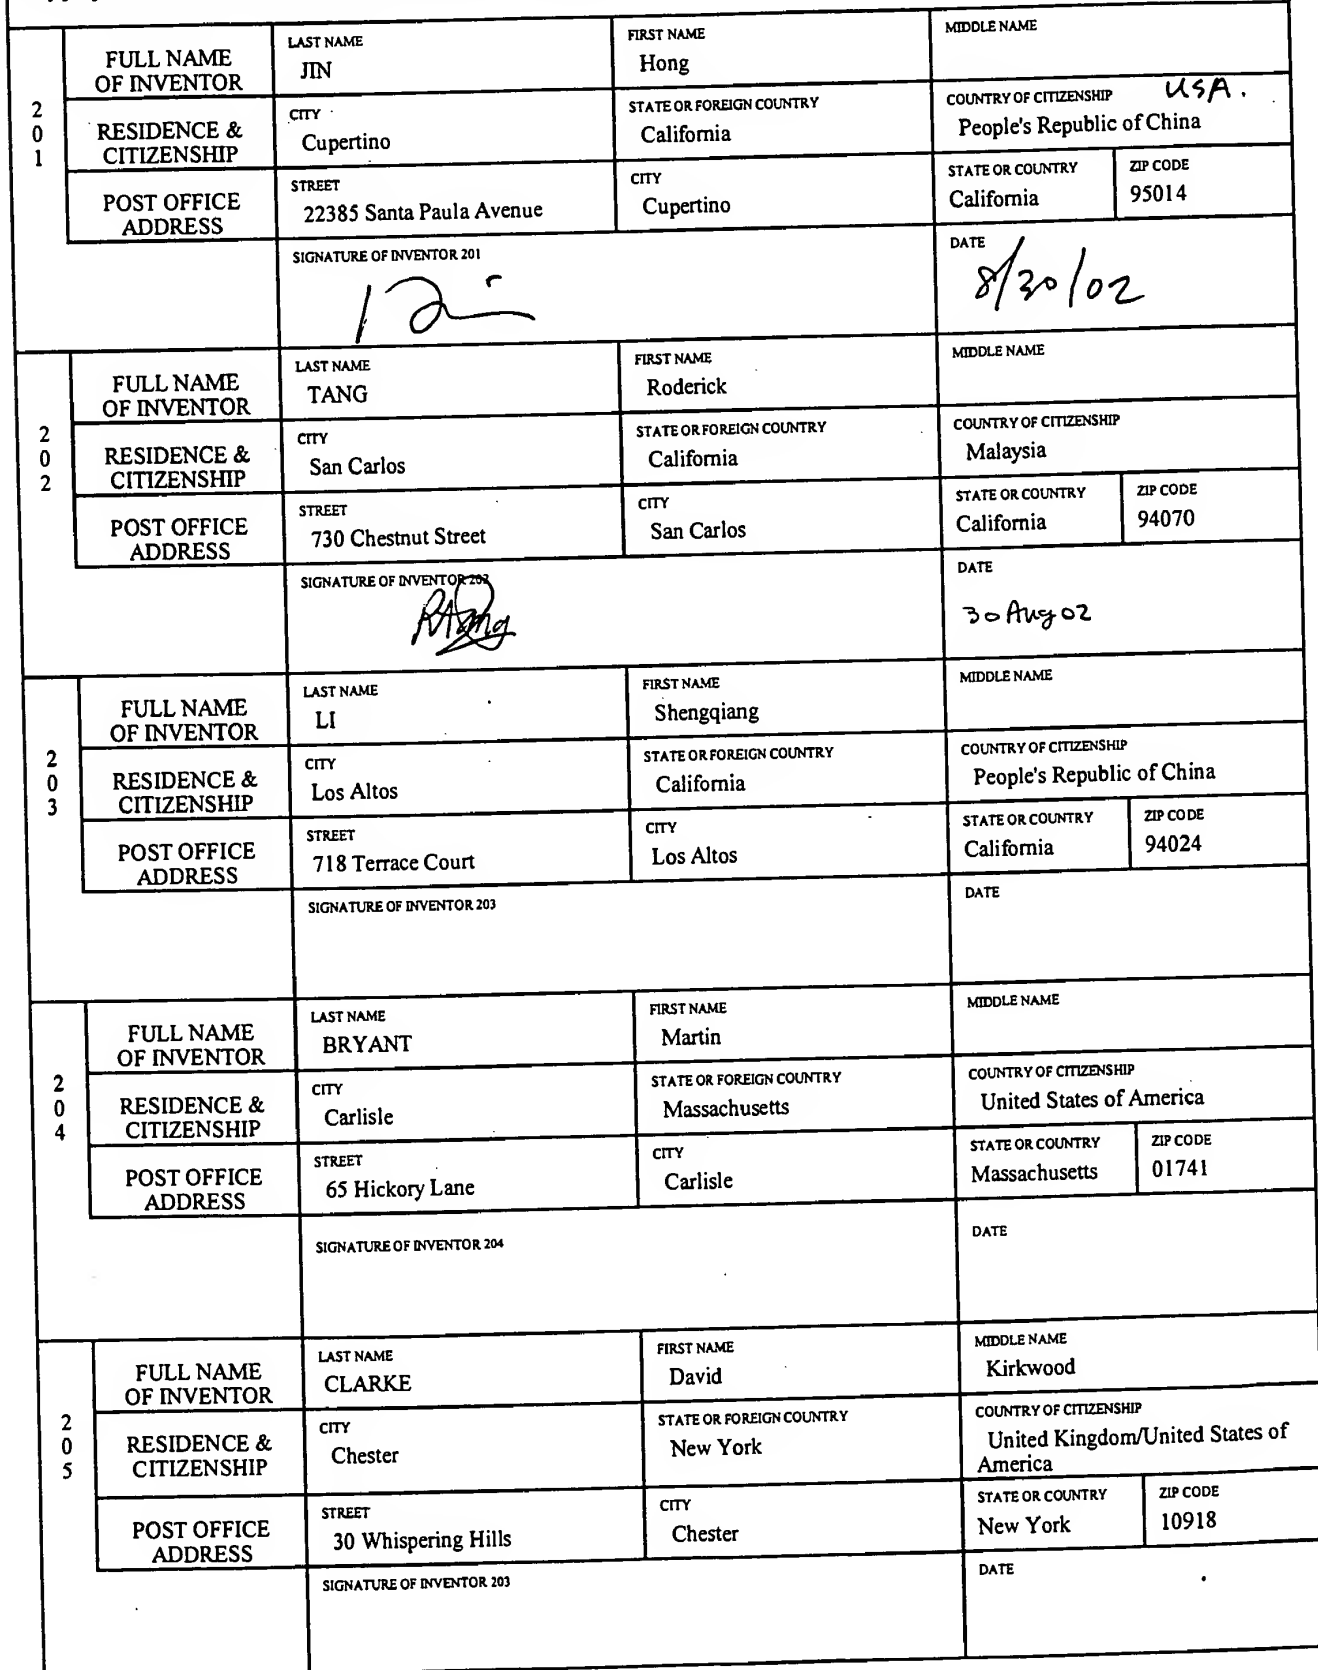 201
FULL NAME OF INVENTOR
LAST NAME
JIN
FIRST NAME
Hong
MIDDLE NAME
RESIDENCE & CITIZENSHIP
CITY
Cupertino
STATE OR FOREIGN COUNTRY
California
COUNTRY OF CITIZENSHIP USA.
People's Republic of China
POST OFFICE ADDRESS
STREET
22385 Santa Paula Avenue
CITY
Cupertino
STATE OR COUNTRY
California
ZIP CODE
95014
SIGNATURE OF INVENTOR 201
DATE
8/30/02
202
FULL NAME OF INVENTOR
LAST NAME
TANG
FIRST NAME
Roderick
MIDDLE NAME
RESIDENCE & CITIZENSHIP
CITY
San Carlos
STATE OR FOREIGN COUNTRY
California
COUNTRY OF CITIZENSHIP
Malaysia
POST OFFICE ADDRESS
STREET
730 Chestnut Street
CITY
San Carlos
STATE OR COUNTRY
California
ZIP CODE
94070
SIGNATURE OF INVENTOR 202
DATE
30 Aug 02
203
FULL NAME OF INVENTOR
LAST NAME
LI
FIRST NAME
Shengqiang
MIDDLE NAME
RESIDENCE & CITIZENSHIP
CITY
Los Altos
STATE OR FOREIGN COUNTRY
California
COUNTRY OF CITIZENSHIP
People's Republic of China
POST OFFICE ADDRESS
STREET
718 Terrace Court
CITY
Los Altos
STATE OR COUNTRY
California
ZIP CODE
94024
SIGNATURE OF INVENTOR 203
DATE
204
FULL NAME OF INVENTOR
LAST NAME
BRYANT
FIRST NAME
Martin
MIDDLE NAME
RESIDENCE & CITIZENSHIP
CITY
Carlisle
STATE OR FOREIGN COUNTRY
Massachusetts
COUNTRY OF CITIZENSHIP
United States of America
POST OFFICE ADDRESS
STREET
65 Hickory Lane
CITY
Carlisle
STATE OR COUNTRY
Massachusetts
ZIP CODE
01741
SIGNATURE OF INVENTOR 204
DATE
205
FULL NAME OF INVENTOR
LAST NAME
CLARKE
FIRST NAME
David
MIDDLE NAME
Kirkwood
RESIDENCE & CITIZENSHIP
CITY
Chester
STATE OR FOREIGN COUNTRY
New York
COUNTRY OF CITIZENSHIP
United Kingdom/United States of
America
POST OFFICE ADDRESS
STREET
30 Whispering Hills
CITY
Chester
STATE OR COUNTRY
New York
ZIP CODE
10918
SIGNATURE OF INVENTOR 203
DATE